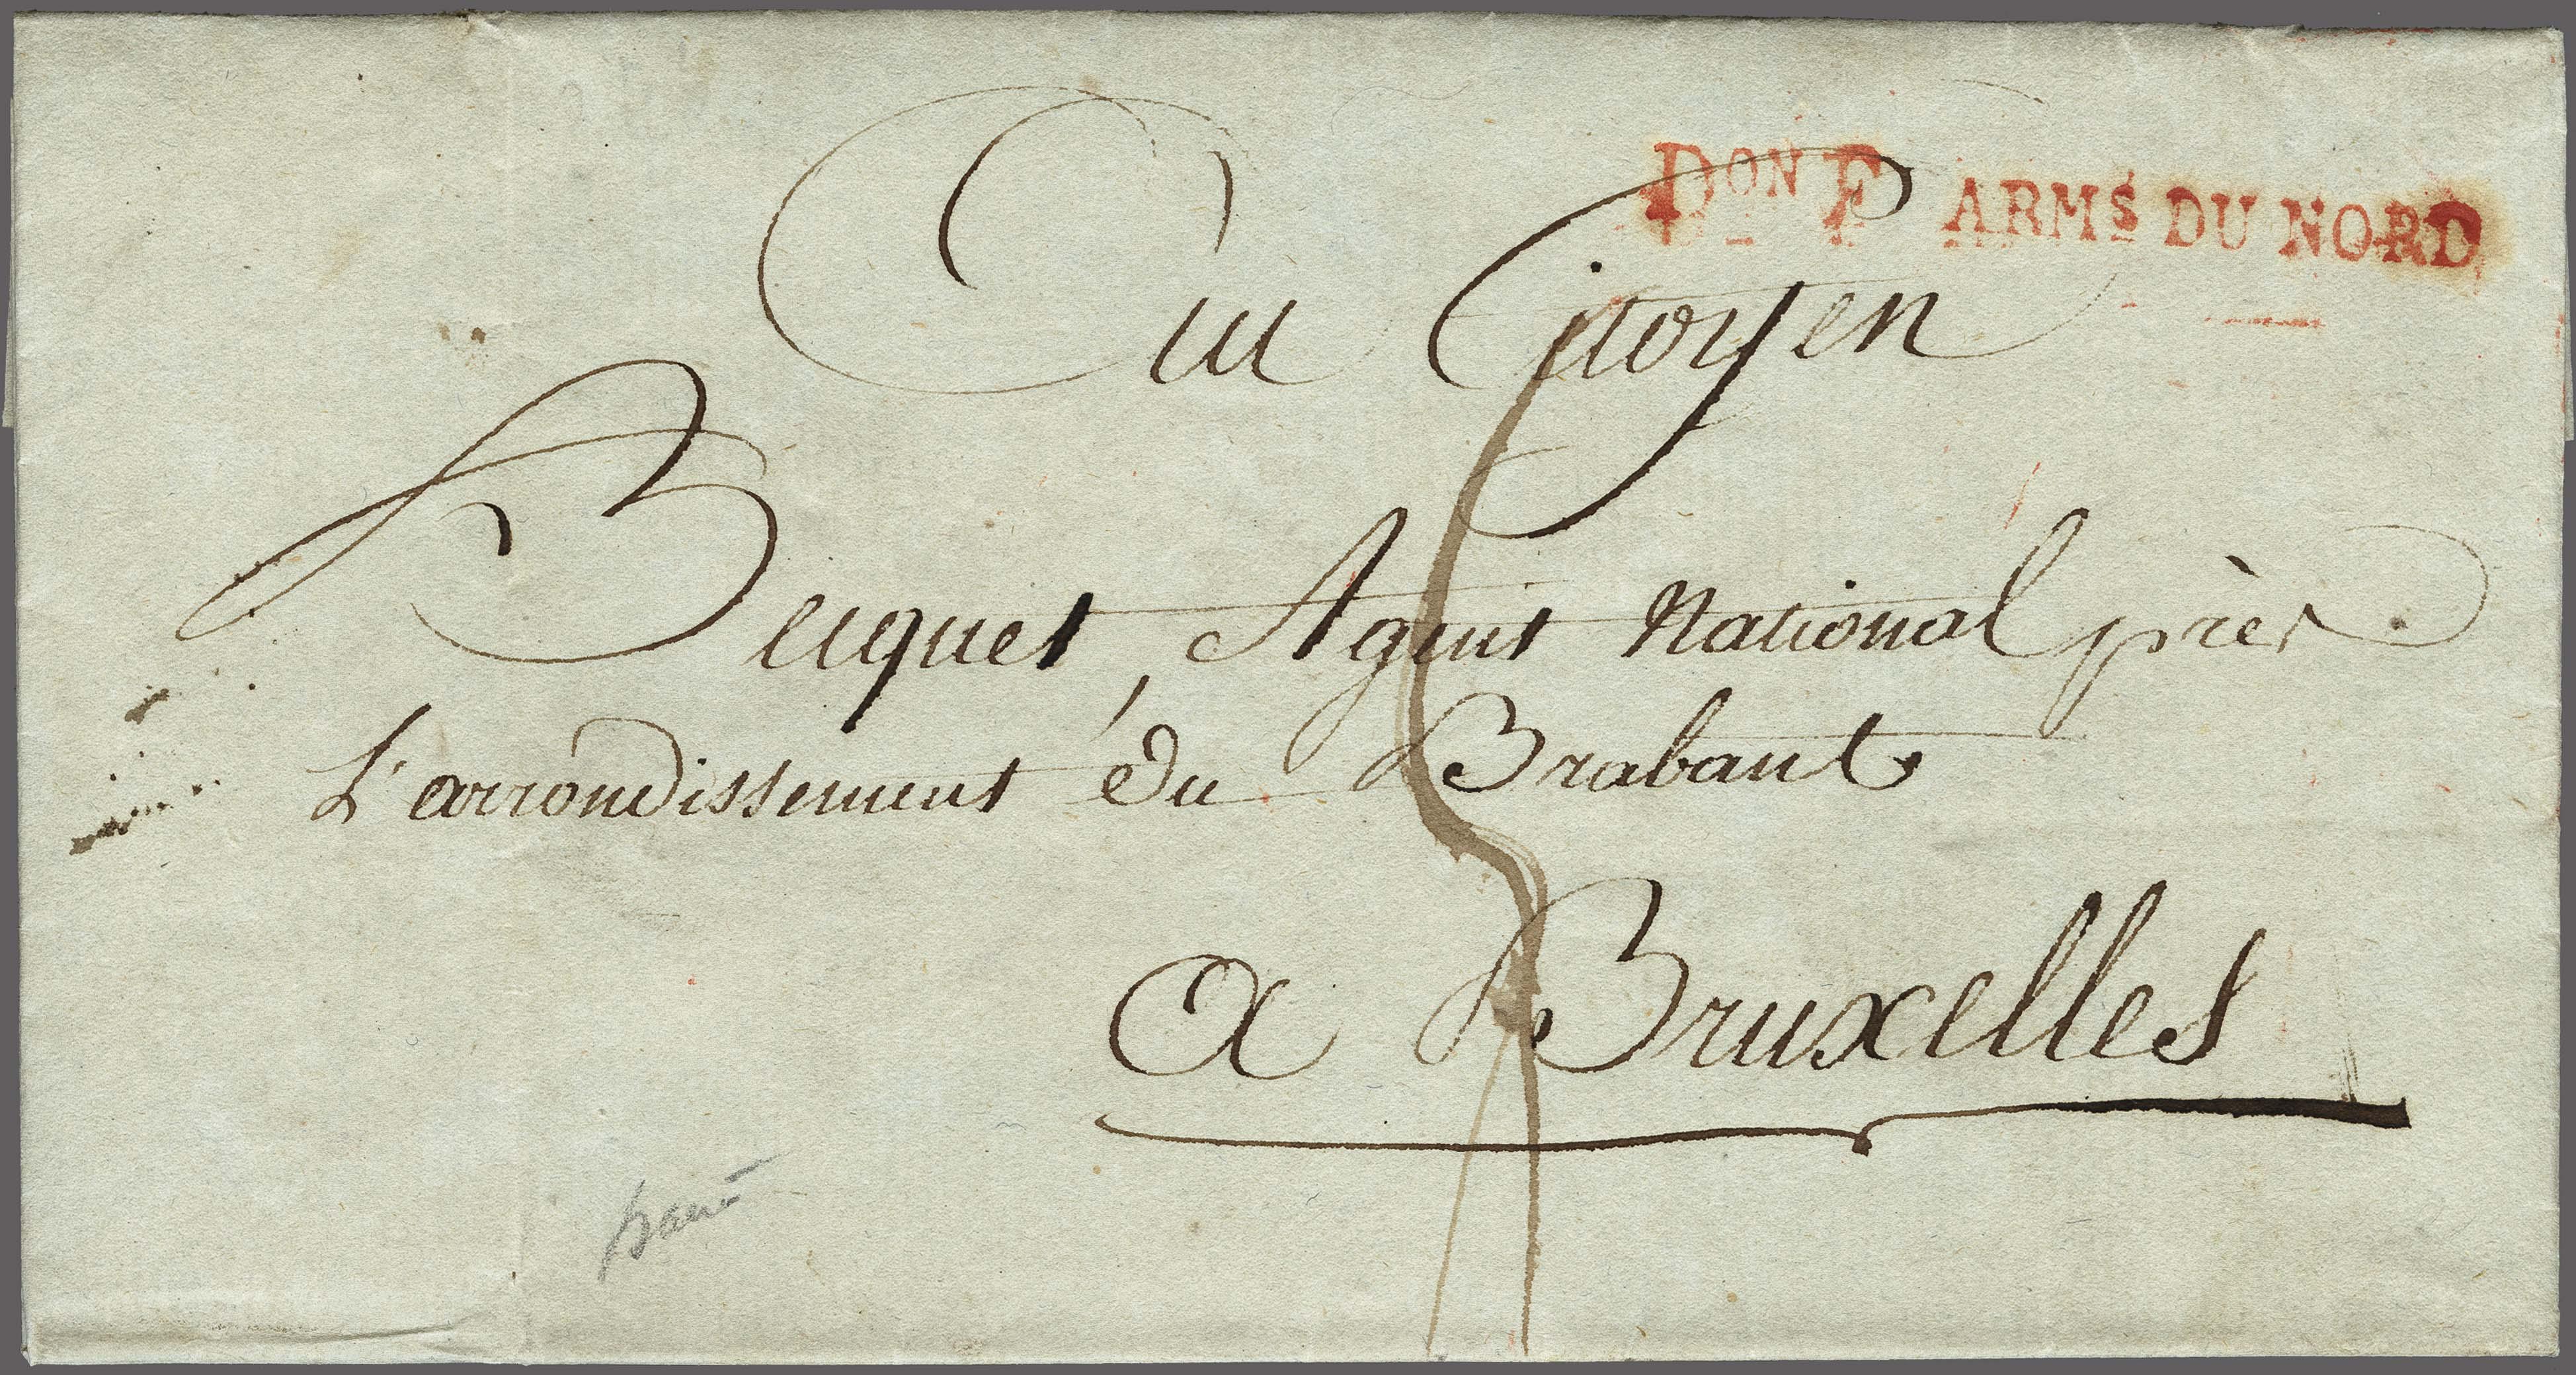 DON F ARMS DU NORD
Au Citoyen
Beuquet, Agent National près
L'arrondissement du Brabant
a Bruxelles